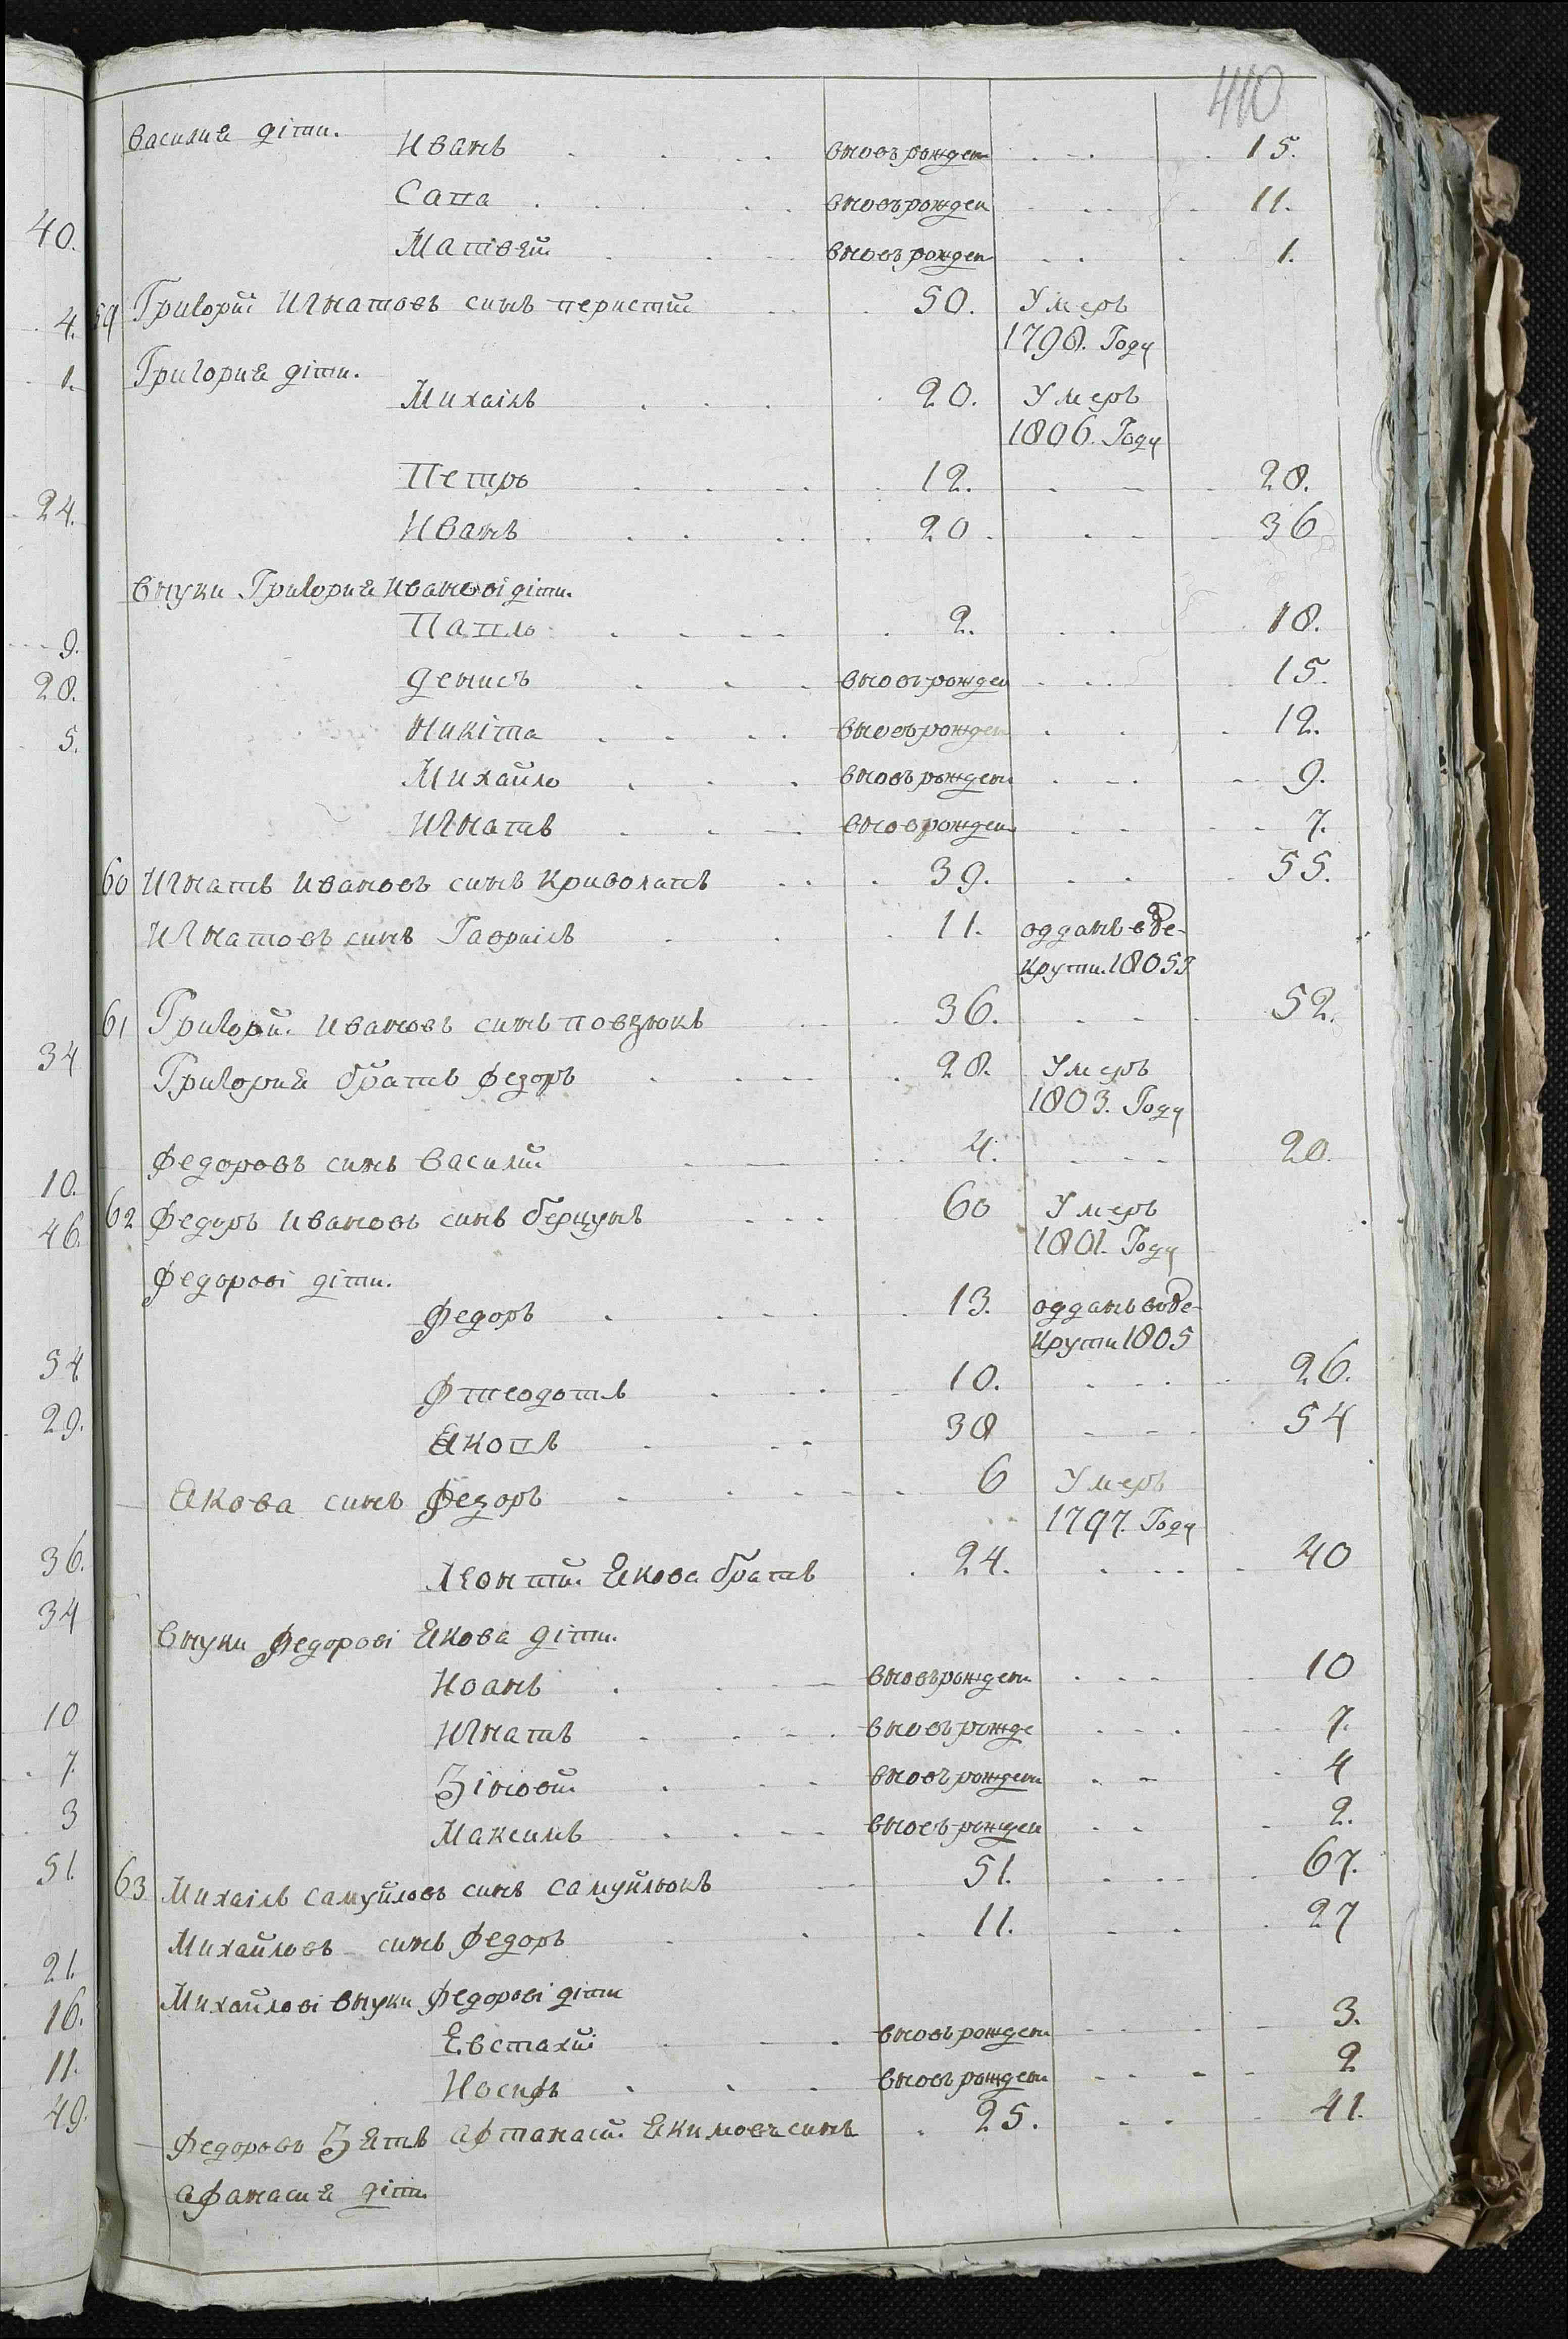 410
Василия діти.
Иванъ вновърожден 15.
Сапа вновърожден 11.
Матвей вновърожден 1.
59 Григорий Игнатовъ синъ перистий 50. Умеръ
1798. Году
Григория діти.
Михаілъ 20. Умеръ
1806. Году
Петръ 12. 28.
Иванъ 20. 36
внуки Григория Иванові діти.
Павлъ 2. 18.
Денисъ вновърожден 15.
Никіта вновърожден 12.
Михайло вновърожден 9.
Игнатъ вноврожден 7.
60 Игнатъ Ивановъ синъ Криволапъ 39. 55.
Игнатовъ синъ Гавриілъ 11. одданъ в Ре-
крути. 1805
61 Григорий Ивановъ синъ Повзюкъ 36. 52.
Григория братъ Федоръ 28. Умеръ
1803. Году
Федоровъ синъ Василий 4. 20.
62 Федоръ Ивановъ синъ Берцунъ 60 Умеръ
1801. Году
Федорові діти.
Федоръ 13. одданъ во Ре-
крути 1805
Фтеодотъ 10. 26.
Якопъ 38 54
Якова синъ Федоръ 6 Умеръ
1797. Году
Леонтий Якова братъ 24. 40
внуки Федорові Якова діти.
Иоанъ вновърожден 10
Игнатъ вновърожде 7.
Зіновий вновърожден 4
Максимъ вновърожден 2.
63 Михаілъ Самуйловъ синъ Самуйлюкъ 51. 67.
Михайловъ синъ Федоръ 11. 27
Михайлові внуки Федорові діти
Евстахий вновърожден 3.
Иосифъ вновърожден 2
Федоровъ Зять Афтанасий Якимовъ синъ 25. 41.
Афанасия діти
40.
4.
1.
24.
9.
28.
5.
34
10.
46.
54
29.
36.
34
10
7.
3
51.
21.
16.
11.
49.